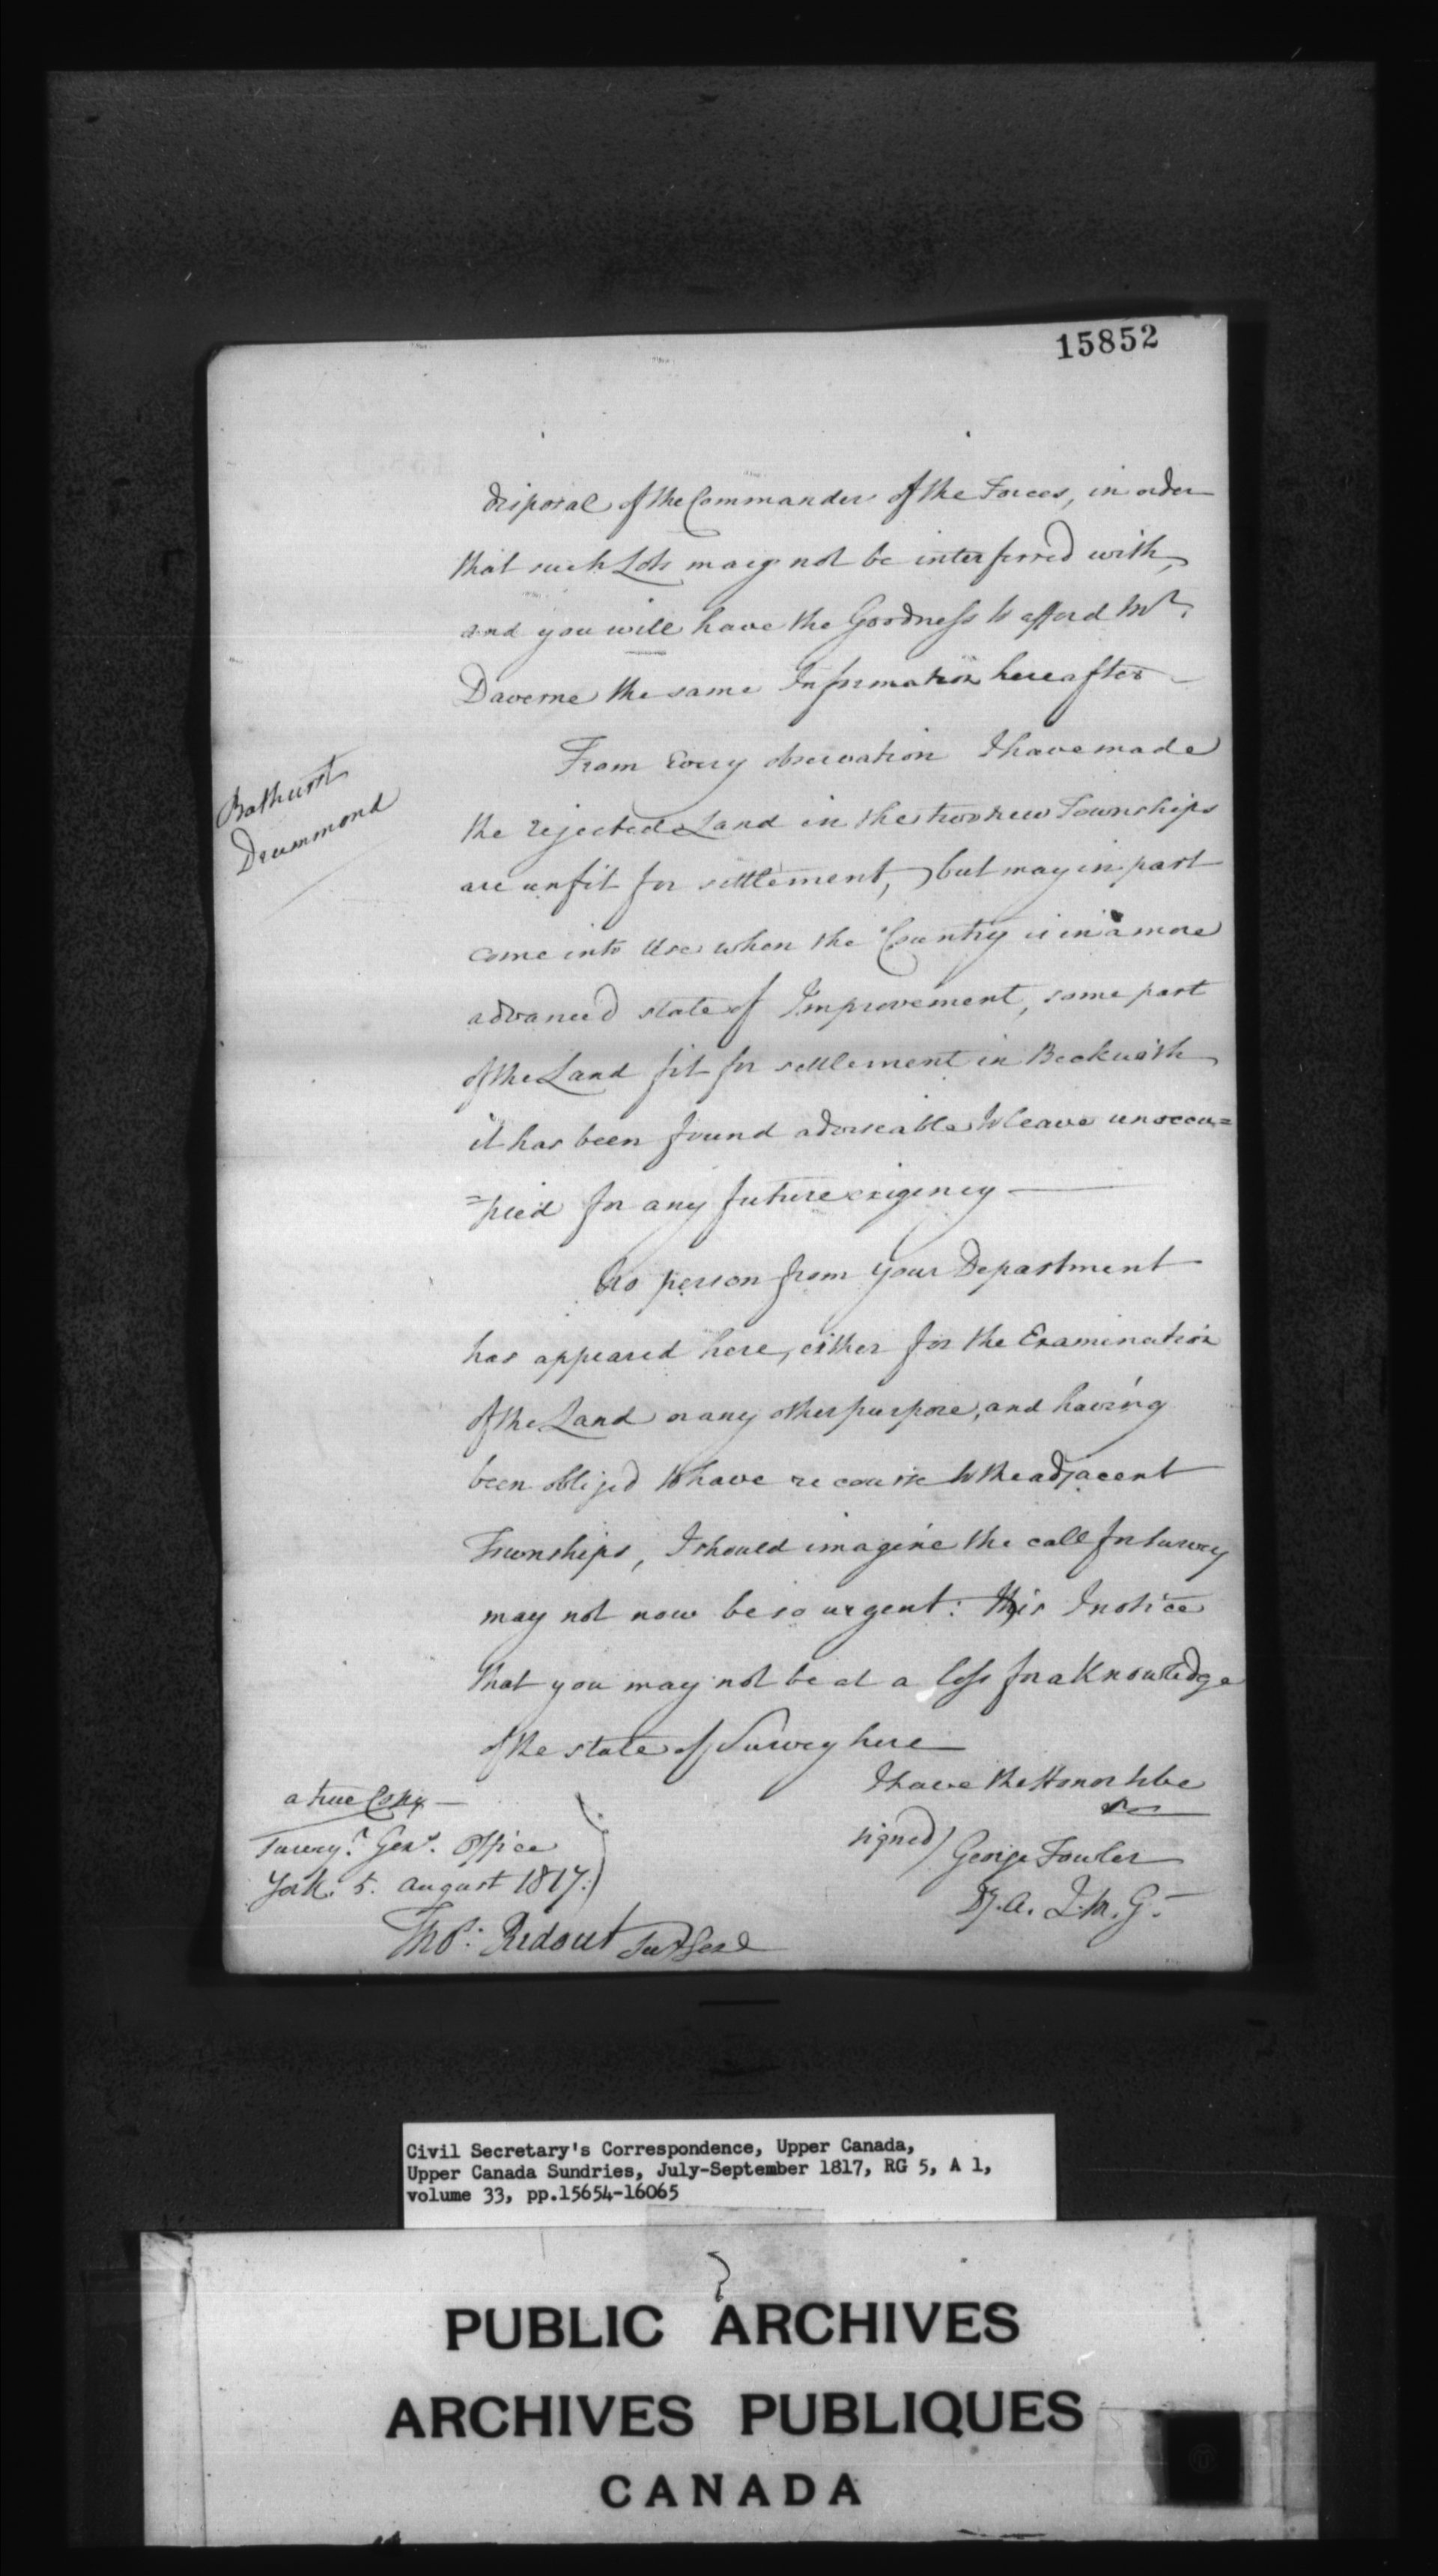 15852
disposal of the Commander of the Forces, in order
that such Lots may not be interferred with,
and you will have the Goodness to afford Mr.
Daverne the same Information hereafter —
From Every observation I have made
Bathurst
Drummond
the rejected Land in the two new Townships
are unfit for settlement, but may in part
come into Use when the Country is in a more
advanced state of Improvement, some part
of the Land fit for settlement in Beckwith
it has been found adviseable to leave unoccu=
=pied for any future exigency —
No person from your Department
has appeared here, either for the Examination
of the Land or any other purpose, and having
been obliged to have recourse to the adjacent
Townships, I should imagine the call for Survey
may not now be so urgent: this I notice
that you may not be at a loss for a Knowledge
of the state of Survey here —
I have the Honor to be
signed) George Fowler
D. A. Q. M. G.
a true Copy —
Survey.r Gen.s Office
York. 5. August 1817.
Tho.s Ridout Sur Genl
Civil Secretary's Correspondence, Upper Canada,
Upper Canada Sundries, July-September 1817, RG 5, A 1,
volume 33, pp.15654-16065
PUBLIC ARCHIVES
ARCHIVES PUBLIQUES
CANADA